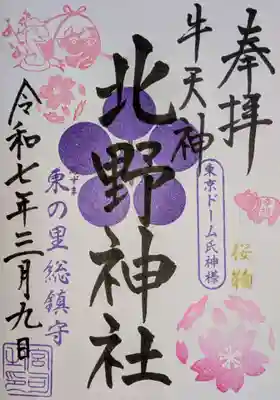 奉拝
牛天神
東京ドーム氏神様
桜物
北野神社
あずま
東の里総鎮守
令和七年三月九日